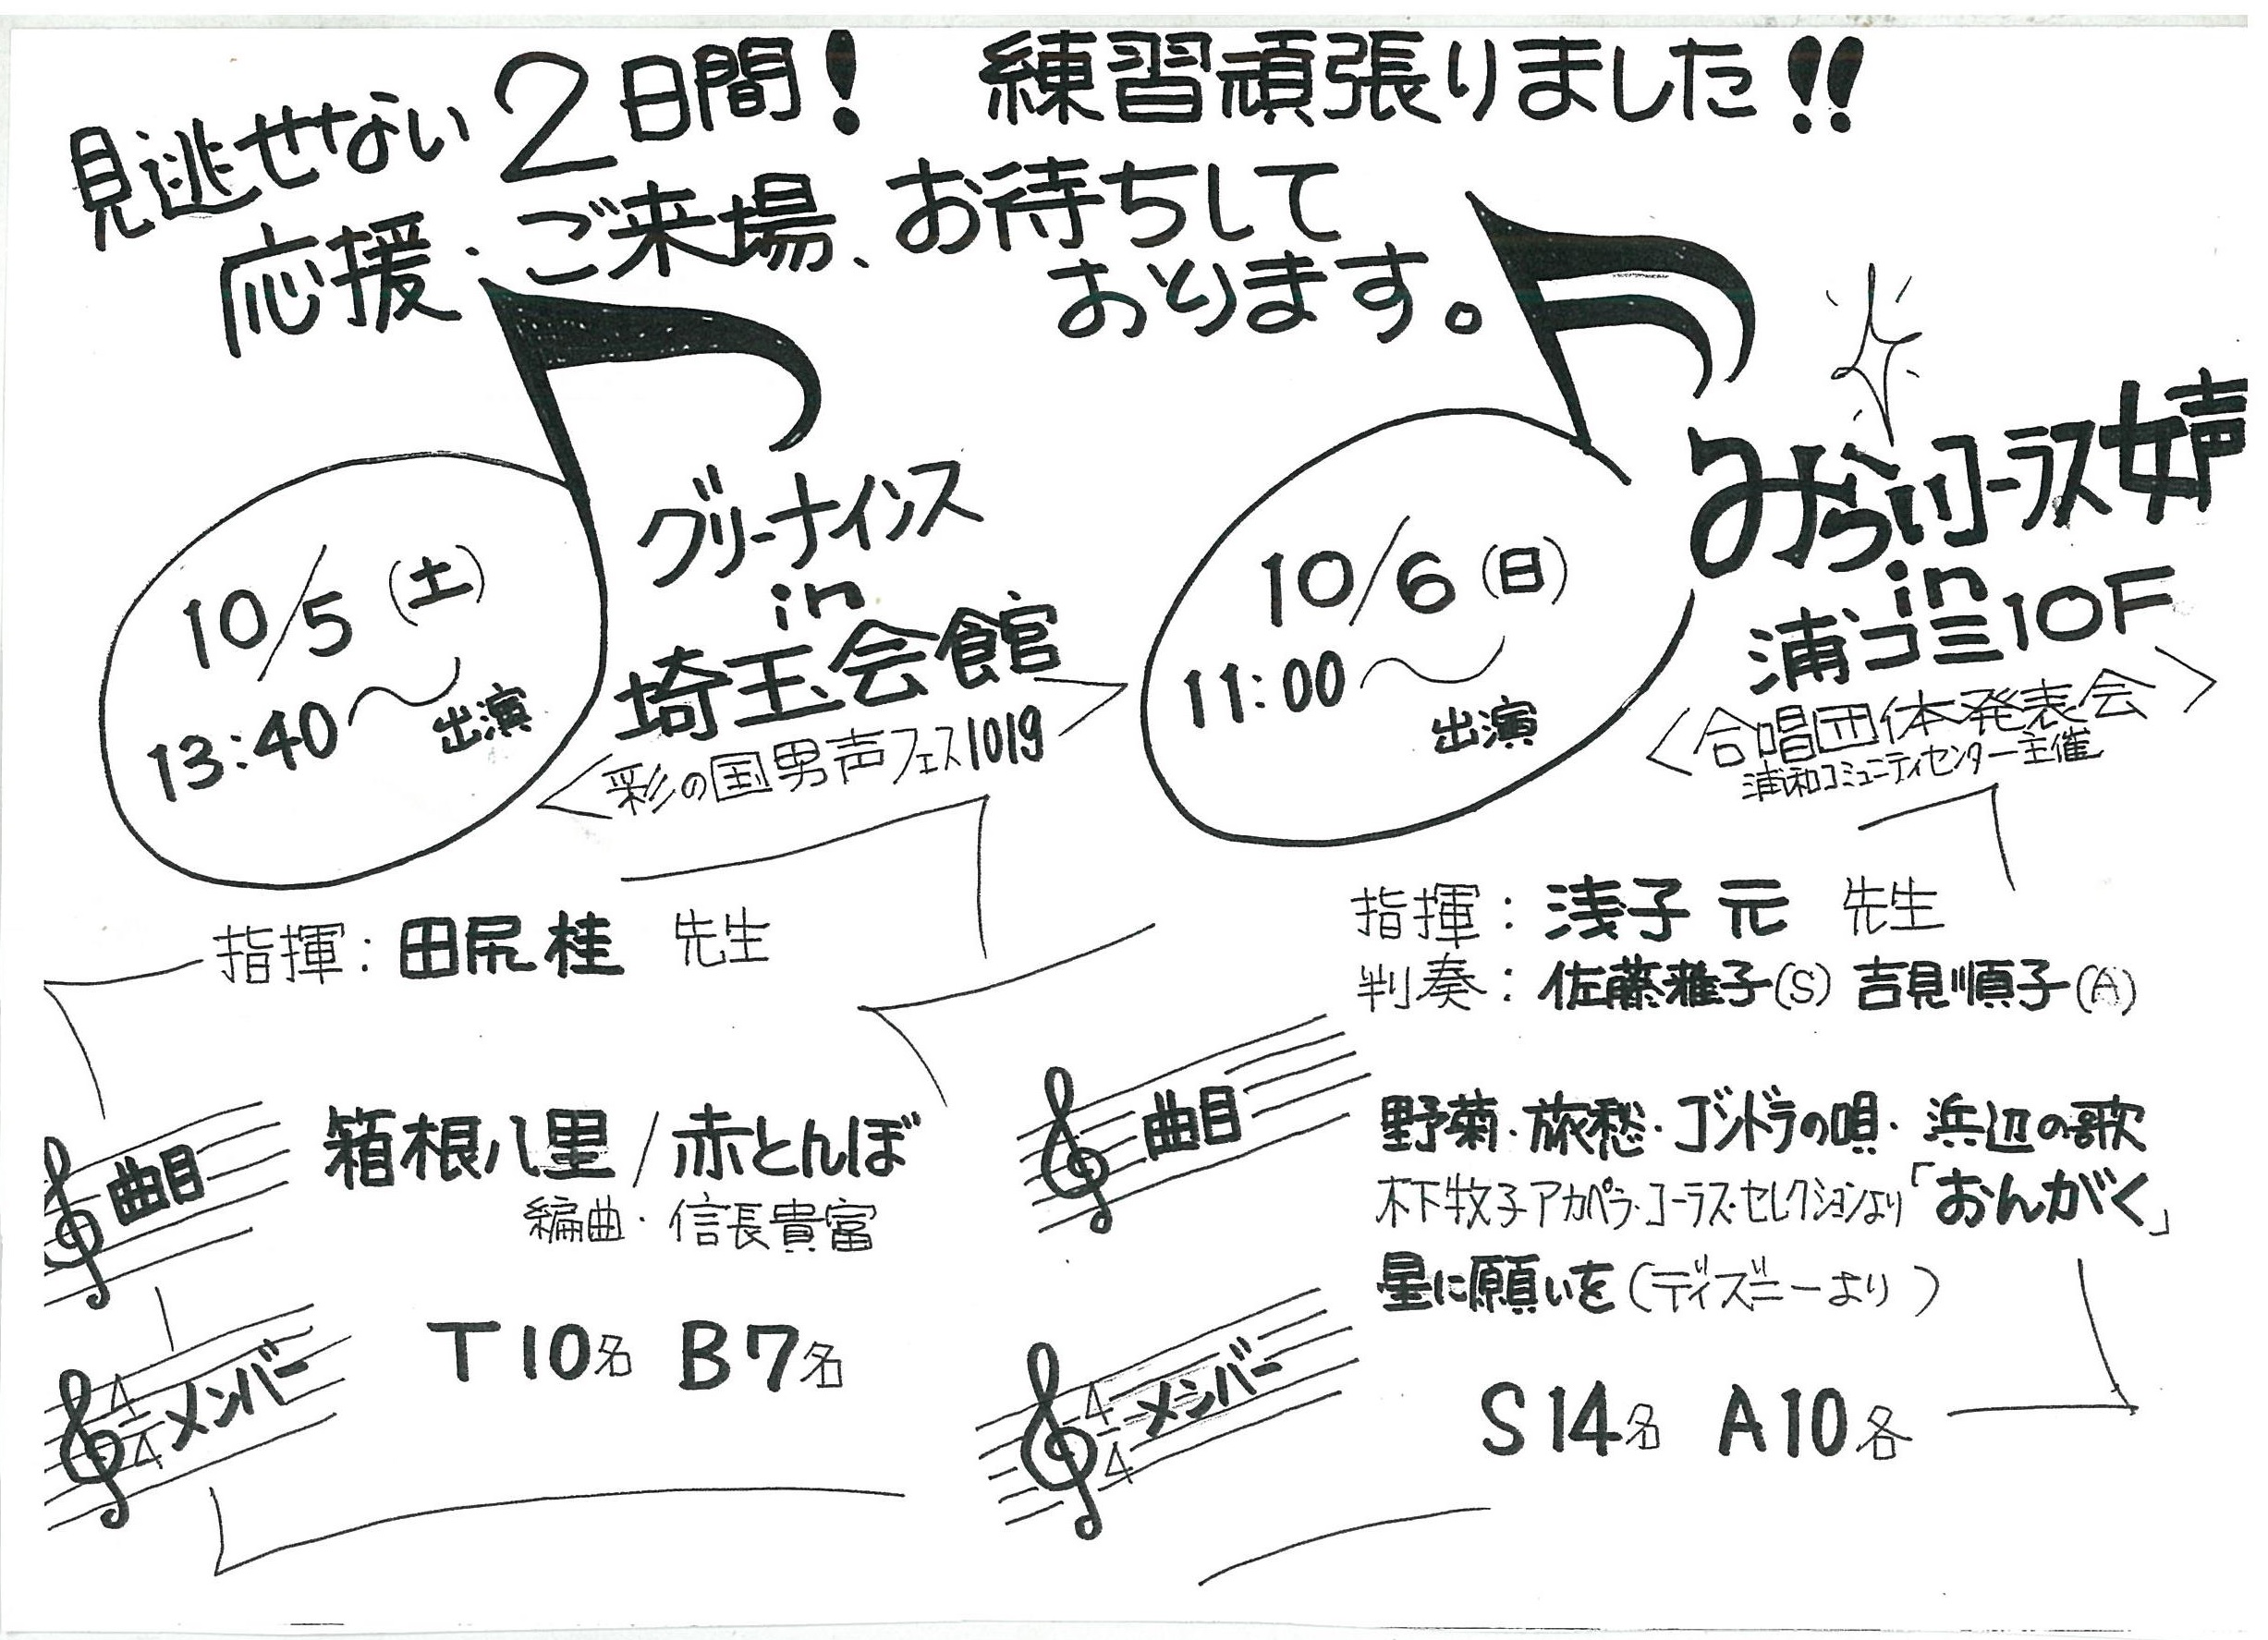 見逃せない2日間! 練習頑張りました!!
応援・ご来場、お待ちして
おります。
10/5(土)
13:40〜
出演
グリーナインス
in
埼玉会館
<彩の国男声フェス1019>
指揮:田尻桂 先生
曲目
箱根八里/赤とんぼ
編曲・信長貴富
4/4 メンバー
T10名 B7名
10/6(日)
11:00〜
出演
みらいコーラス女声
in
浦コミ10F
<合唱団体発表会>
浦和コミュニティセンター主催
指揮:浅子 元 先生
判奏:佐藤雅子(S) 吉見順子(A)
曲目
野菊・旅愁・ゴンドラの唄・浜辺の歌
木下牧子アカペラ・コーラス・セレクションより「おんがく」
星に願いを(ディズニーより)
4/4 メンバー
S14名 A10名